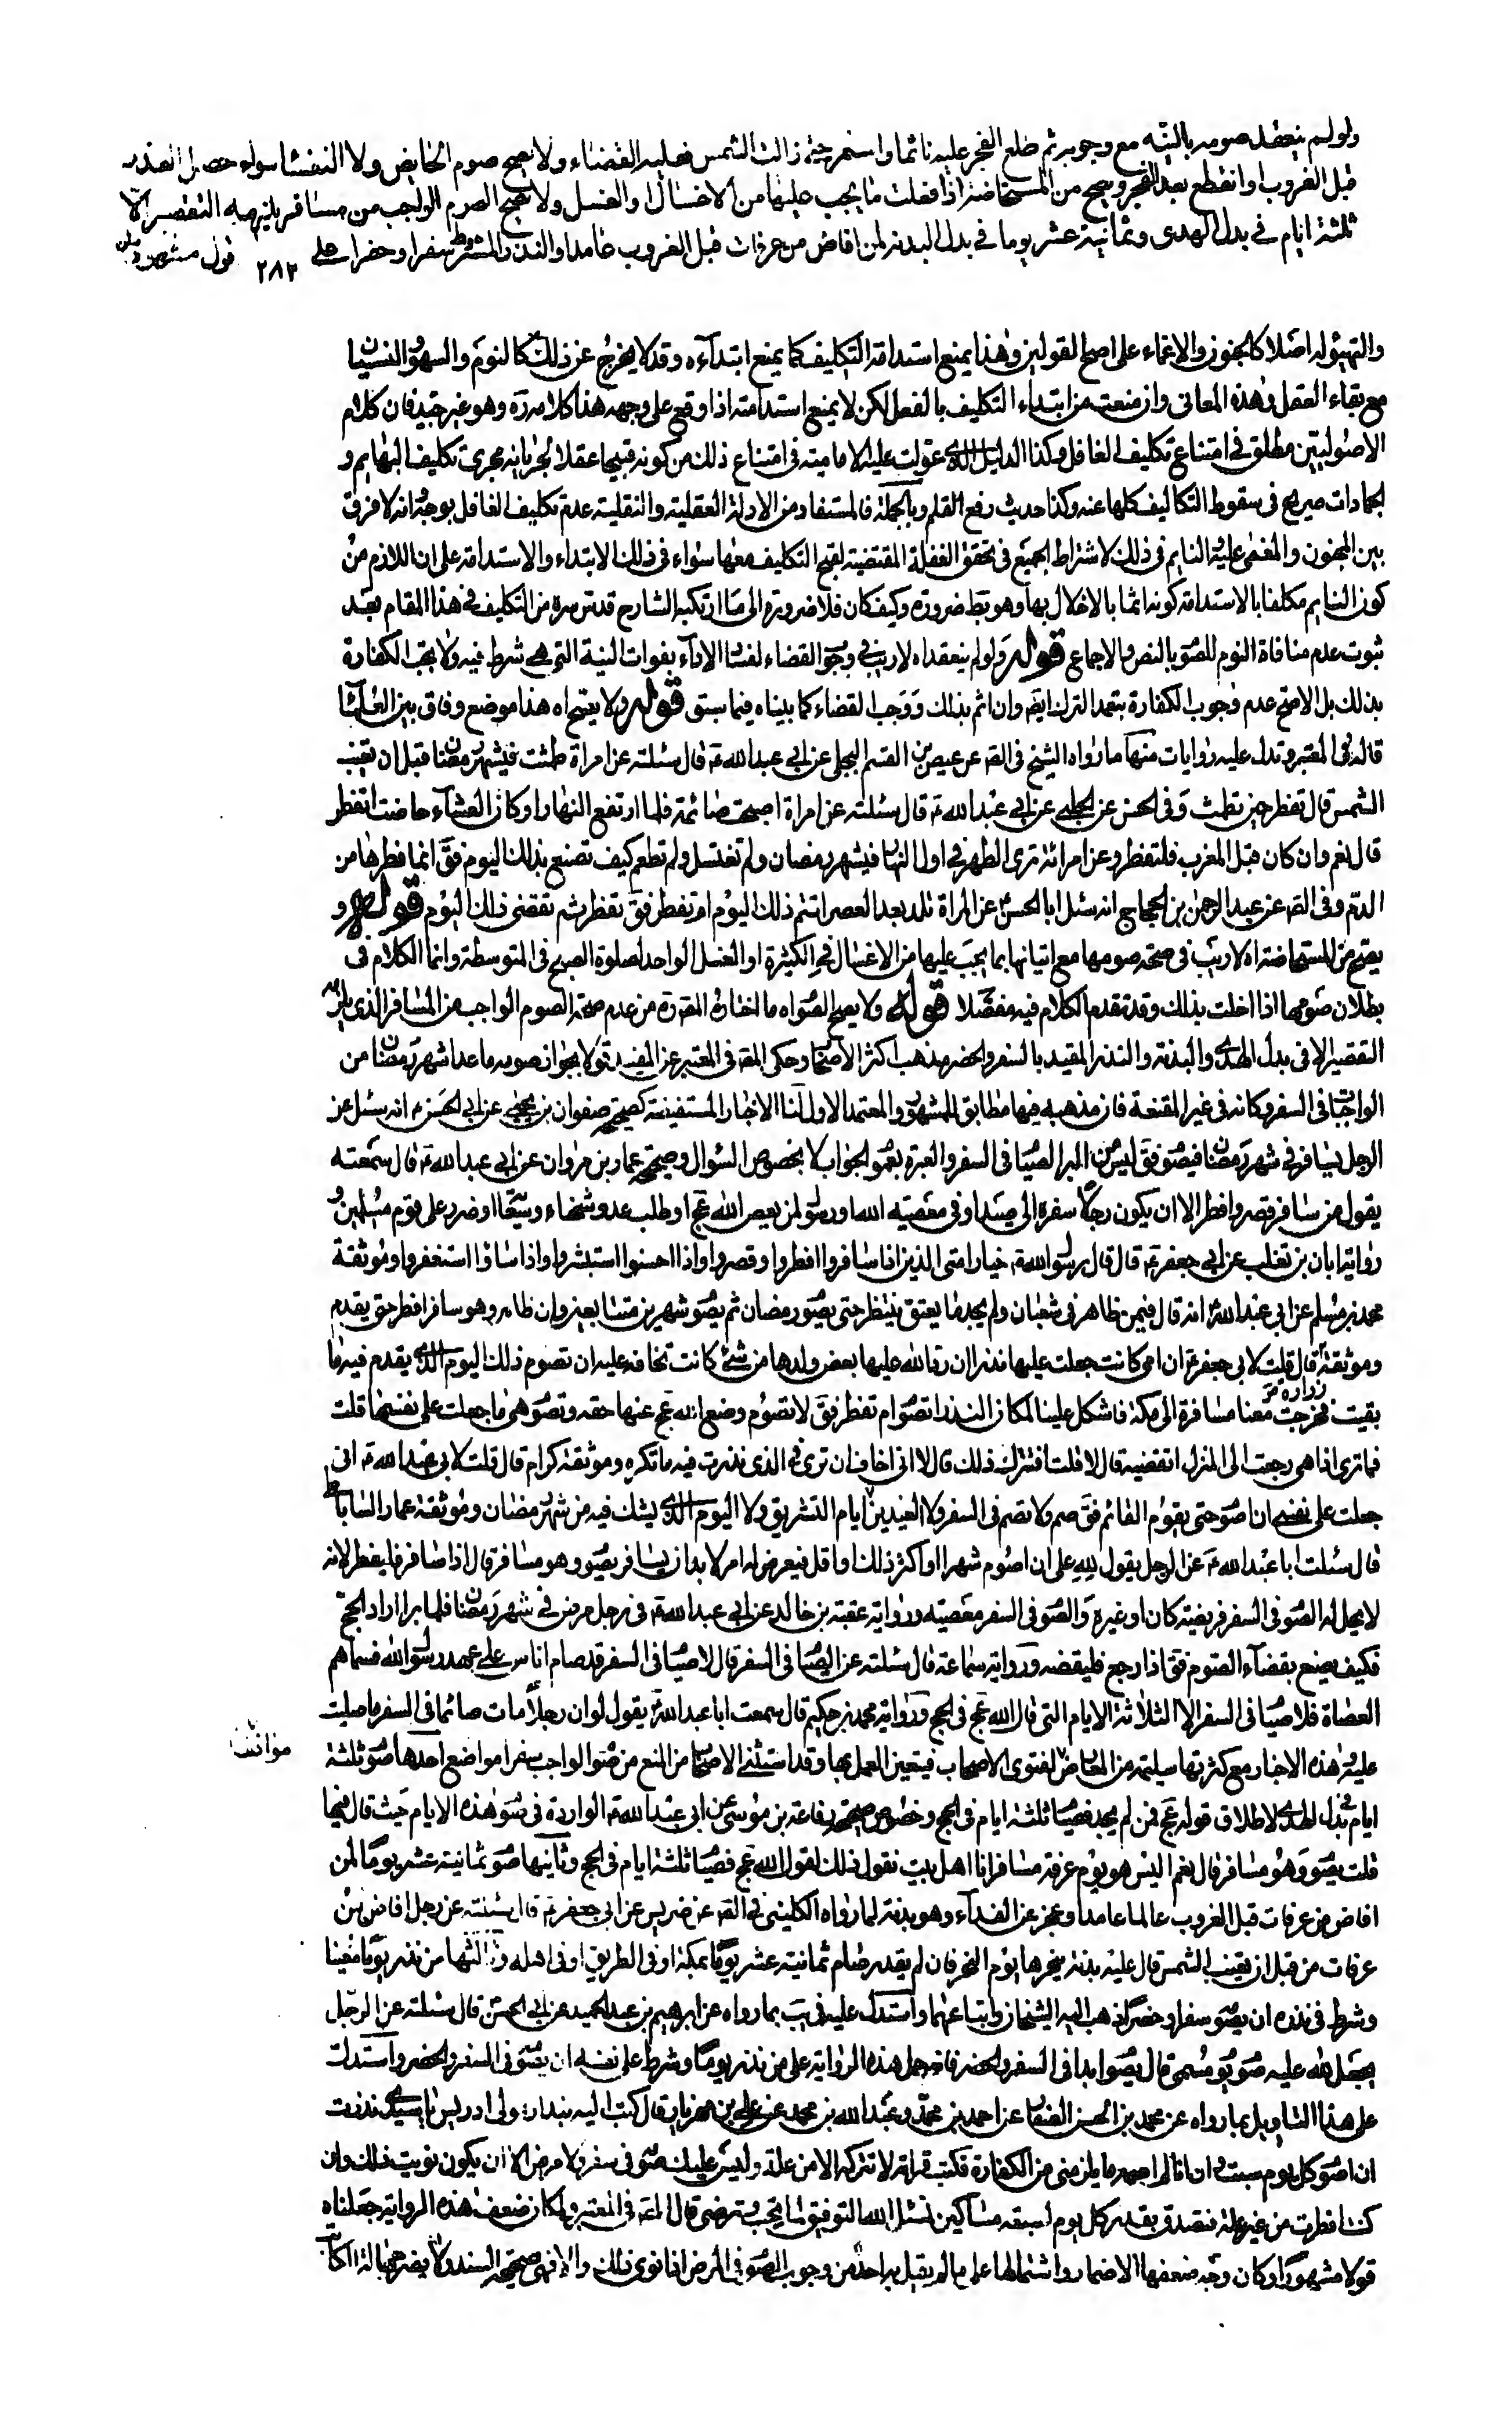 ولو لم ينعقد صومه بالنية مع وجوبه ثم طلع الفجر عليه نائما واستمر حتى زالت الشمس فعليه القضاء ولا يصح صوم الحايض ولا النفسا سواء حصل العذر
قبل الغروب او انقطع بعد الفجر ويصح من المستحاضة اذا فعلت ما يجب عليها من الاغسال او الغسل ولا يصح الصوم الواجب من مسافر يلزمه التقصير الا
ثلثة ايام في بدل الهدى وثمانية عشر يوما في بدل البدنة لمن افاض من عرفات قبل الغروب عامدا والنذر المشترط سفرا وحضرا على ٢٨٢ قول مشهور
والتهيؤ له اصلا كالجنون والاغماء على اصح القولين وهذا يمنع استدامة التكليف كما يمنع ابتدآءه وقد لا يخرج عن ذلك كالنوم والسهو والنسيان
مع بقاء العقل وهذه المعانى وان منعت من ابتداء التكليف بالفعل لكن لا يمنع استدامته اذا وقع على وجهه هذا كلامه ره وهو غير جيد فان كلام
الاصوليين مطلق فى امتناع تكليف الغافل وكذا الدليل الذى عولت عليه الامامية فى امتناع ذلك من كونه قبيحا عقلا لجريانه مجرى تكليف البهايم و
الجمادات صريح فى سقوط التكاليف كلها عنه وكذا حديث رفع القلم وبالجملة فالمستفاد من الادلة العقلية والنقلية عدم تكليف الغافل بوجه وانه لا فرق
بين المجنون والمغمى عليه والنايم فى ذلك لاشتراك الجميع فى تحقق الغفلة المقتضية لقبح التكليف معها سواء فى ذلك الابتداء والاستدامة على ان اللازم من
كون النايم مكلفا بالاستدامة كونه اثما بالاخلال بها وهو بط ضرورة وكيف كان فلا ضرورة الى ما ارتكبه الشارح قدس سره من التكليف فى هذا المقام بعد
ثبوت عدم منافاة النوم للصو بالنص والاجماع قوله ولو لم ينعقد اه لا ريب فى وجو القضاء لفسا الاداء بفوات النية التى هى شرط فيه ولا يجب الكفارة
بذلك بل الاصح عدم وجوب الكفارة بتعمد الترك ايضا وان اثم بذلك ووجب القضاء كما بيناه فيما سبق قوله ولا يصح اه هذا موضع وفاق بين العلماء
قاله فى المعتبر وتدل عليه روايات منها ما رواه الشيخ فى الصه عن عيص بن القسم البجلى عن ابى عبد الله ع قال سئلته عن امراة طمثت فى شهر رمضان قبل ان تغيب
الشمس قال تفطر حين تطمث وفى الحسن عن الحلبى عن ابى عبد الله ع قال سئلته عن امراة اصبحت صائمة فلما ارتفع النهار او كان العشاء حاضت اتفطر
قال نعم وان كان قبل المغرب فلتفطر وعن امراة ترى الطهر فى اول النهار فى شهر رمضان ولم تغتسل ولم تطعم كيف تصنع بذلك اليوم فق انما فطرها من
الدم وفى الصه عن عبد الرحمن بن الحجاج انه سئل ابا الحسن ع عن المراة تلد بعد العصر اتتم ذلك اليوم ام تفطر فق تفطر ثم تقضى ذلك اليوم قوله و
يصح من المستحاضة اه لا ريب فى صحة صومها مع اتيانها بما يجب عليها من الاغسال فى الكثيرة او الغسل الواحد لصلوة الصبح فى المتوسطة وانما الكلام فى
بطلان صومها اذا اخلت بذلك وقد تقدم الكلام فيه مفصلا قوله ولا يصح الصو اه ما اختاره المصه ره من عدم صحة الصوم الواجب من المسافر الذى يلزمه
التقصير الا فى بدل الهدى والبدنة والنذر المقيد بالسفر والحضر مذهب اكثر الاصحا وحكى المصه فى المعتبر عن المفيد قولا بجواز صوم ما عدا شهر رمضان من
الواجبات فى السفر وكانه فى غير المقنعة فان مذهبه فيها مطابق للمشهور والمعتمد الاول لنا الاخبار المستفيضة كصحيحة صفوان بن يحيى عن ابى الحسن ع انه سئل عن
الرجل يسافر فى شهر رمضان فيصو فق ليس من البر الصيا فى السفر والعبرة بعمو الجواب لا بخصوص السؤال وصحيحة عمار بن مروان عن ابى عبد الله ع قال سمعته
يقول من سافر قصر وافطر الا ان يكون رجلا سفره الى صيد او فى معصية الله او رسولا لمن يعصى الله عج او طلب عدو شحناء وسعا او ضرر على قوم مسلمين و
رواية ابان بن تغلب عن ابى جعفر ع قال قال رسو الله ص خيار امتى الذين اذا سافروا افطروا وقصروا واذا احسنوا استبشروا واذا اساؤا استغفروا وموثقة
محمد بن مسلم عن ابى عبد الله ع انه قال فيمن ظاهر فى شعبان ولم يجد ما يعتق ينتظر حتى يصو رمضان ثم يصو شهرين متتابعين وان ظاهر وهو مسافر افطر حتى يقدم
وموثقة زرارة قال قلت لابى جعفر ع ان امى كانت جعلت عليها نذرا ان رد الله عليها بعض ولدها من شئ كانت تخاف عليه ان تصوم ذلك اليوم الذى يقدم فيه ما
بقيت فخرجت معنا مسافرة الى مكة فاشكل علينا لمكان النذر اتصو ام تفطر فق لا تصوم وضع الله عج عنها حقه وتصو هى ما جعلت على نفسها قلت
فما ترى اذا هى رجعت الى المنزل اتقضيه قال لا قلت افتترك ذلك قال لا انى اخاف ان ترى فى الذى نذرت فيه ما تكره وموثقة كرام قال قلت لابى عبد الله ع انى
جعلت على نفسى ان اصو حتى يقوم القائم فق صم ولا تصم فى السفر ولا العيدين ولا ايام التشريق ولا اليوم الذى يشك فيه من شهر رمضان وموثقة عمار الساباطى
قال سئلت ابا عبد الله ع عن الرجل يقول لله على ان اصوم شهرا او اكثر من ذلك او اقل فيعرض له امر لا بد ان يسافر يصو وهو مسافر قال اذا سافر فليفطر لانه
لا يحل له الصو فى السفر فريضة كان او غيره والصو فى السفر معصية ورواية عقبة بن خالد عن ابى عبد الله ع فى رجل مرض فى شهر رمضان فلما برا اراد الحج
فكيف يصنع بقضاء الصوم فق اذا رجع فليقضه ورواية سماعة قال سئلته عن الصيا فى السفر قال لا صيا فى السفر قد صام اناس على عهد رسو الله فسماهم
العصاة فلا صيا فى السفر الا الثلاثة الايام التى قال الله عج فى الحج ورواية محمد بن حكيم قال سمعت ابا عبد الله ع يقول لو ان رجلا مات صائما فى السفر ما صليت
عليه وهذه الاخبار مع كثرتها سليمة من المعارض موافقة لفتوى الاصحاب فيتعين العمل بها وقد استثنى الاصحا من المنع من صو الواجب سفرا مواضع احدها صو ثلثة
ايام فى بدل الهدى لاطلاق قوله عج فمن لم يجد فصيا ثلثة ايام فى الحج وخصوص صحيحة رفاعة بن موسى عن ابى عبد الله ع الواردة فى صو هذه الايام حيث قال فيها
قلت يصو وهو مسافر قال نعم اليس هو يوم عرفة مسافرا انا اهل بيت نقول ذلك لقول الله عج فصيا ثلثة ايام فى الحج وثانيها صو ثمانية عشر يوما لمن
افاض من عرفات قبل الغروب عالما عامدا وعجز عن الفداء وهو بدنة لما رواه الكلينى فى الصه عن ضريس عن ابى جعفر ع قال سئلته عن رجل افاض من
عرفات من قبل ان يغيب الشمس قال عليه بدنة ينحرها يوم النحر فان لم يقدر صام ثمانية عشر يوما بمكة او فى الطريق او فى اهله وثالثها من نذر يوما معينا
وشرط فى نذره ان يصو سفرا وحضرا ذهب اليه الشيخان واتباعهما واستدل عليه فى يب بما رواه عن ابرهيم بن عبد الحميد عن ابى الحسن ع قال سئلته عن الرجل
يجعل لله عليه صو يو مسمى قال يصو ابدا فى السفر والحضر فانه حمل هذه الرواية على من نذر يوما وشرط على نفسه ان يصو فى السفر والحضر واستدل
على هذا التاويل بما رواه عن محمد بن الحسن الصفا عن احمد بن محمد وعبد الله بن محمد عن على بن مهزيار قال كتب اليه بندار مولى ادريس يا سيدى نذرت
ان اصو كل يوم سبت وان انا لم اصمه ما يلزمنى من الكفارة فكتب وقراته لا تتركه الا من علة وليس عليك صو فى سفر ولا مرض الا ان يكون نويت ذلك وان
كنت افطرت من غير علة فتصدق بقدر كل يوم لسبعة مساكين نسئل الله التوفيق لما يحب ويرضى قال المصه فى المعتبر ولمكان ضعف هذه الرواية جعلناه
قولا مشهورا وكان وجه ضعفها الاضمار واشتمالها على ما لم يقل به احد من وجوب الصو فى المرض اذا نوى ذلك والا فهى صحيحة السند ولا يضر جهالة الكاتب
موافقة